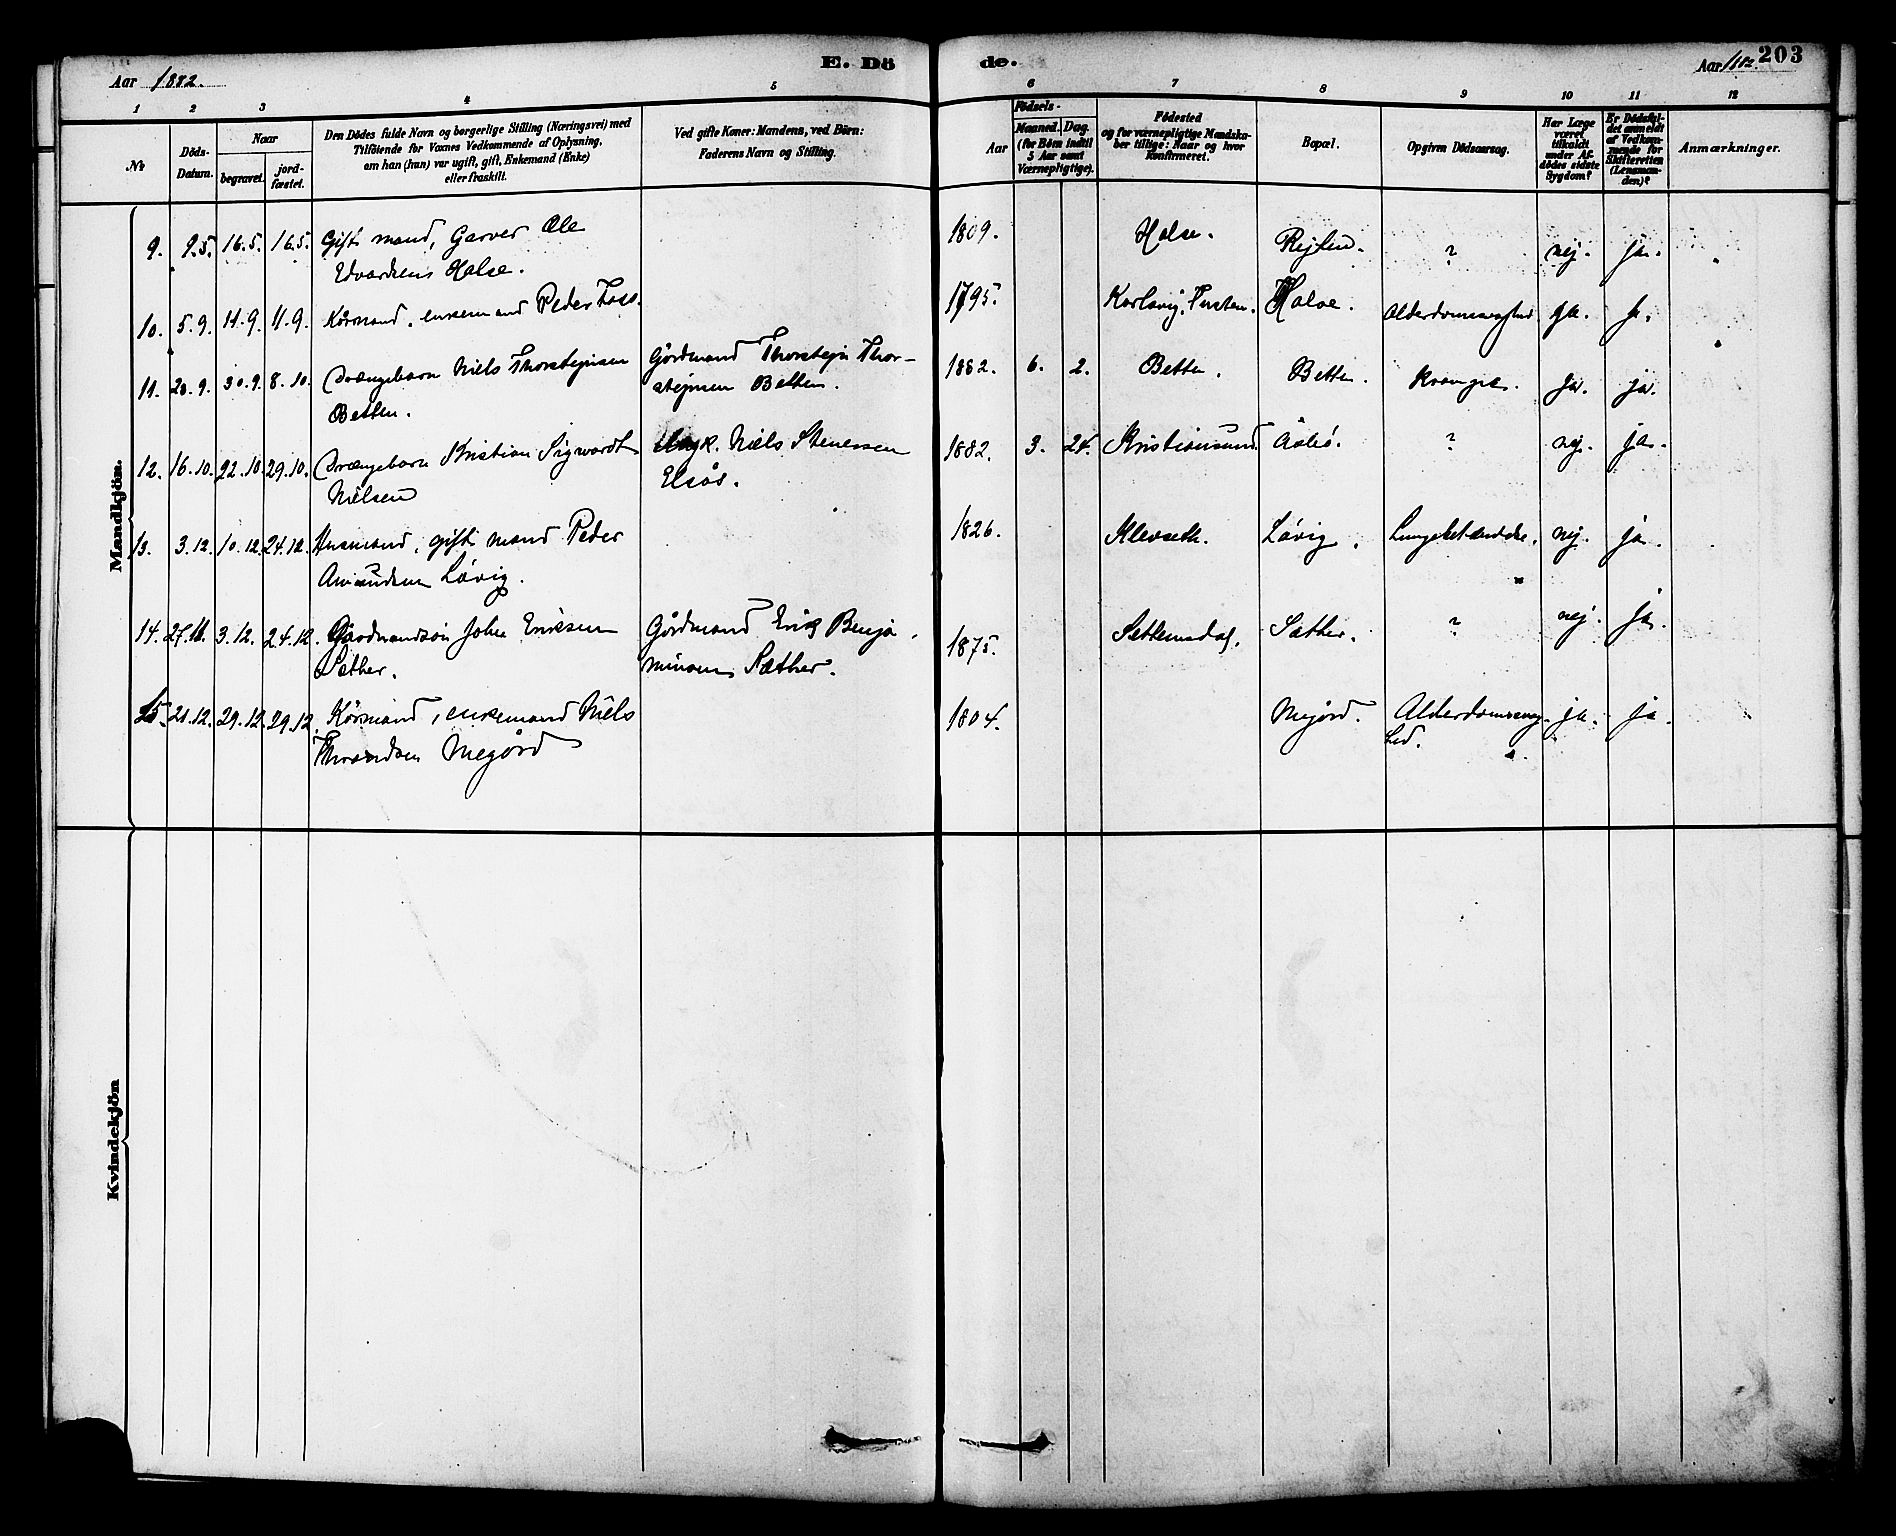 E. Dö de.
203
Aar 1882.
Aar 1882.
1 2 3 4 5 6 7 8 9 10 11 12
No
Döds-
Datum.
Naar
begravet.
jord-
fæstet.
Den Dödes fulde Navn og borgerlige Stilling (Næringsvei) med
Tilföiende for Voxnes Vedkommende af Oplysning,
om han (hun) var ugift, gift, Enkemand (Enke)
eller fraskilt.
Ved gifte Koner: Mandens, ved Börn:
Faderens Navn og Stilling.
Födsels-
Aar
Maaned. Dag.
(for Börn indtil
5 Aar samt
Værnepligtige).
Födested
og for værnepligtige Mandska-
ber tillige: Naar og hvor
konfirmeret.
Bopæl.
Opgiven Dödsaarsag.
Har Læge
været
tilkaldt
under Af-
dödes sidste
Sygdom?
Er Dödsfal-
det anmeldt
af Vedkom-
mende for
Skifteretten
(Lensman-
den)?
Anmærkninger.
Mandkjön.
9. 9.5. 16.5. 16.5. Gift mand, Garver Ole
Edvardsens Halse.
1809. Halse. Rejten. ? nej. ja.
10. 5.9. 11.9. 11.9. Kårmand, enkemand Peder
1795. Karlsvig, Tusten. Halse. ja. ja.
11. 20.9. 30.9. 8.10. Drængebarn Niels Thorstejnsen
Betten.
Gårdmand Thorstejn Thor-
stejnsen Betten.
1882. 6. 2. Betten. Betten. ja. ja.
12. 16.10. 22.10. 29.10. Drængebarn Kristian Sigwardt
Nielsen
Ungk. Niels Stenersen
Elsås.
1882. 3. 24. Kristiansund. ? nej. ja.
13. 3.12. 10.12. 24.12. Husmand, gift mand Peder
Amundsen Låvig.
1826. Klevseth. Låvig. Lungebetændelse. nej. ja.
14. 27.11. 3.12. 24.12. Gårdmandsön John Eriksen
Sæther.
Gårdmand Erik Benja-
minsen Sæther.
1875. Settemsdal. Sæther. ? nej. ja.
15. 21.12. 29.12. 29.12. Kårmand, enkemand Niels
Throndsen Megård
1804. Megård. Alderdomssvag-
hed. ja. ja.
Kvindekjön